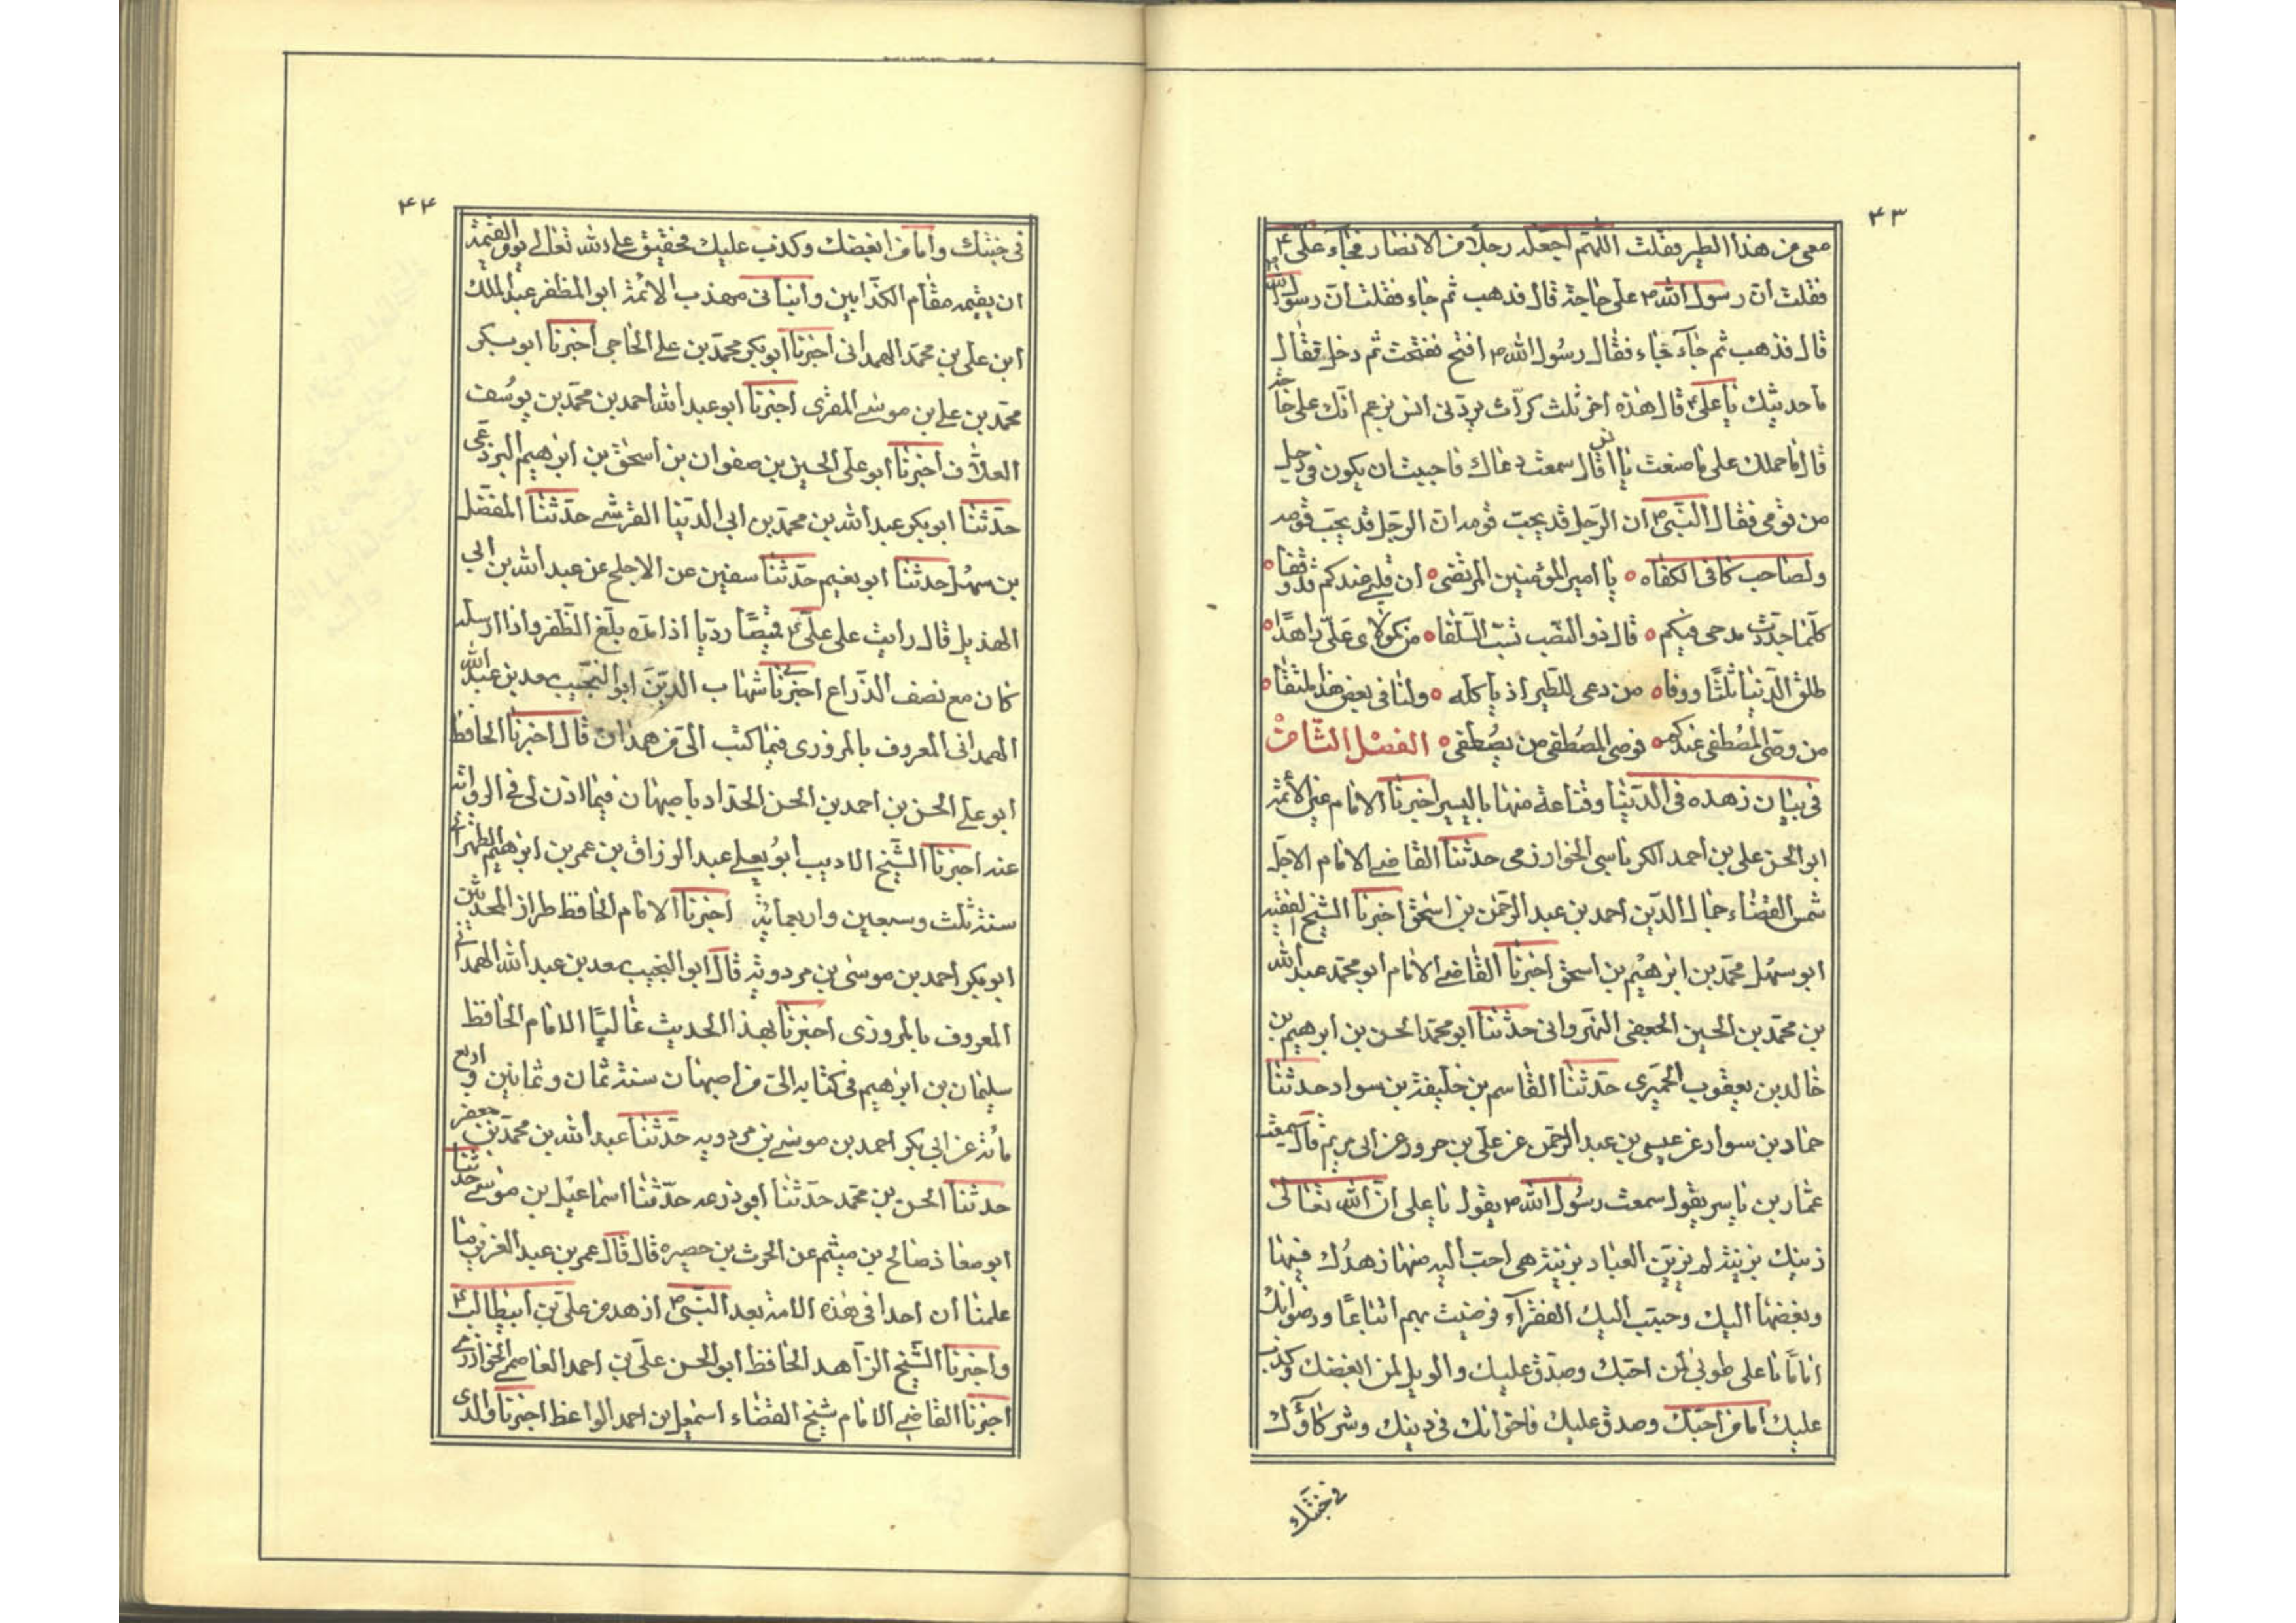 ۴۳
معی من هذا الطیر فقلت اللهم اجعله رجلا من الانصار فجاء علی ع
فقلت ان رسول الله ص علی حاجة قال فذهب ثم جاء فقلت ان رسول الله ص
قال فذهب ثم جاء فقال رسول الله ص افتح ففتحت ثم دخل فقال
ما حدیثک یا علی ع قال هذه اخر ثلث کرّات یردّنی انس یزعم انک علی حاجة
قال ما حملک علی ما صنعت یا انس قال سمعت دعاک فاحببت ان یکون فی رجل
من قومی فقال النبی ص ان الرجل قد یحبّ قومه ان الرجل قد یحبّ قومه
ولصاحب کافی الکفاه یا امیر المؤمنین المرتضی ان قلبی عندکم قد وقفا
کلما جددت مدحی فیکم قال ذو النصب تسبّ السلفا من کمولای علیّ زاهدا
طلق الدنیا ثلثا ووفا من دعی للطیر اذ یاکله ولنا فی بعض هذا مکتفا
من وصیّ المصطفی عندکم فوصی المصطفی من یصطفی الفصل الثامن
فی بیان زهده فی الدنیا وقناعة منها بالیسیر اخبرنا الامام عین الائمة
ابو الحسن علی بن احمد الکرباسی الخوارزمی حدثنا القاضی الامام الاجل
شمس القضاء جمال الدین احمد بن عبد الرحمن بن اسحق اخبرنا الشیخ الفقیه
ابو سهل محمد بن ابرهیم بن اسحق اخبرنا القاضی الامام ابو محمد عبد الله
بن محمد بن الحسین الجعفی النهروانی حدثنا ابو محمد الحسن بن ابرهیم بن
خالد بن یعقوب الحمیری حدثنا القاسم بن خلیفة بن سواد حدثنا
حماد بن سوار عن عیسی بن عبد الرحمن عن علی بن حرور عن ابی مریم قال سمعت
عمار بن یاسر یقول سمعت رسول الله ص یقول یا علی ان الله تعالی
زینک بزینة لم یزین العباد بزینة هی احب الیه منها زهدک فیها
وبغضها الیک وحبب الیک الفقراء فرضیت بهم اتباعا ورضوا بک
اماما یا علی طوبی لمن احبک وصدق علیک والویل لمن ابغضک وکذب
علیک اما من احبک وصدق علیک فاخوانک فی دینک وشرکاؤک
فی جنتک
۴۴
فی جنتک واما من ابغضک وکذب علیک فحقیق علی الله تعالی یوم القیمة
ان یقیمه مقام الکذابین وانبانی مهذب الائمة ابو المظفر عبد الملک
ابن علی بن محمد الهمدانی اخبرنا ابو بکر محمد بن علی الحاجی اخبرنا ابو بکر
محمد بن علی بن موسی المقری اخبرنا ابو عبد الله احمد بن محمد بن یوسف
العلاف اخبرنا ابو علی الحسین بن صفوان بن اسحق بن ابرهیم البردعی
حدثنا ابو بکر عبد الله بن محمد بن ابی الدنیا القرشی حدثنا المفضل
بن سهل حدثنا ابو نعیم حدثنا سفین عن الاجلح عن عبد الله بن ابی
الهذیل قال رایت علی علی ع قمیصا ردیا اذا مده بلغ الظفر واذا ارسله
کان مع نصف الذراع اخبرنی شهاب الدین ابو النجیب سعد بن عبد الله
الهمدانی المعروف بالمروزی فیما کتب الی من همدان قال اخبرنا الحافظ
ابو علی الحسن بن احمد بن الحسن الحداد باصبهان فیما اذن لی فی الروایة
عنه اخبرنا الشیخ الادیب ابو یعلی عبد الرزاق بن عمر بن ابرهیم الطهرانی
سنة ثلث وسبعین واربعمایة اخبرنا الامام الحافظ طراز المحدثین
ابو بکر احمد بن موسی بن مردویه قال ابو النجیب سعد بن عبد الله الهمدانی
المعروف بالمروزی اخبرنا بهذا الحدیث عالیا الامام الحافظ
سلیمان بن ابرهیم فی کتابه الی من اصبهان سنة ثمان وثمانین واربع
مائة عن ابی بکر احمد بن موسی بن مردویه حدثنا عبد الله بن محمد بن جعفر
حدثنا الحسن بن محمد حدثنا ابو زرعه حدثنا اسماعیل بن موسی حدثنا
ابو معاذ صالح بن میثم عن الحرث بن حصیره قال قال عمر بن عبد العزیز ما
علمنا ان احدا فی هذه الامة بعد النبی ص ازهد من علی بن ابیطالب ع
واخبرنا الشیخ الزاهد الحافظ ابو الحسن علی بن احمد العاصمی الخوارزمی
اخبرنا القاضی الامام شیخ القضاء اسمعیل بن احمد الواعظ اخبرنا والدی